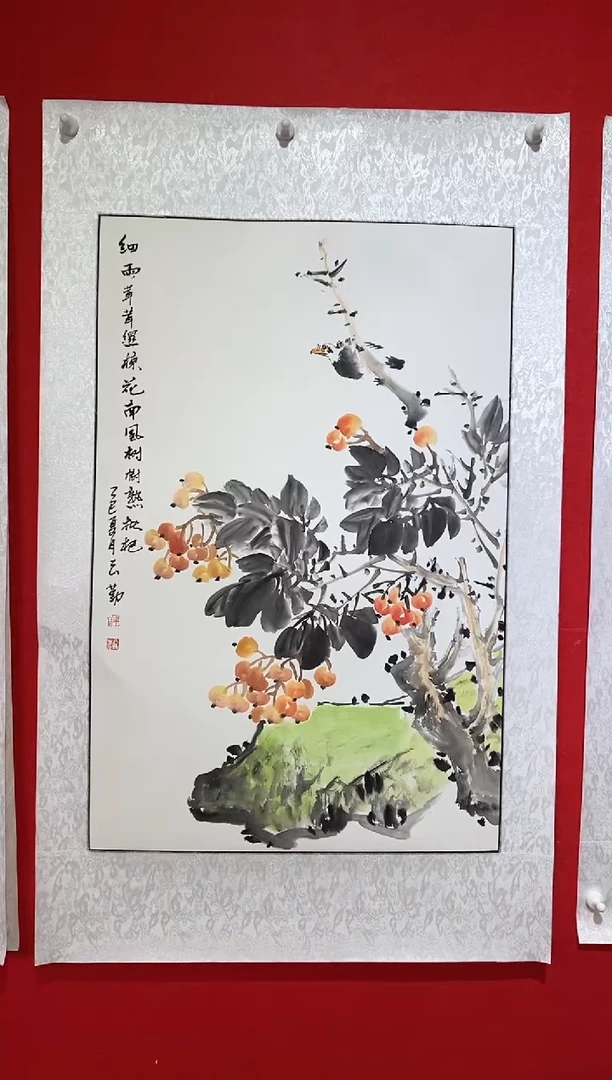 细雨茸茸湿楝花南風树樹熟枇杷
乙巳夏月云勤